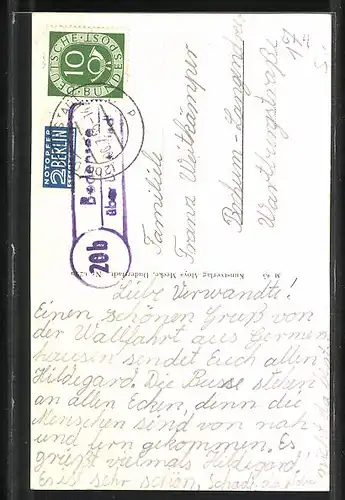 DEUTSCHE BUNDESPOST
10
NOTOPFER
2 BERLIN
STEUERMARKE
20b
Bodensee
über
Familie
Franz Weitkämper
Bochum-Langendreer
Wartburgstraße
Kunstverlag Aloys Mecke, Duderstadt
Liebe Verwandte!
Einen schönen Gruß von
der Wallfahrt aus Germers-
hausen sendet Euch allen
Hildegard. Die Busse stehen
an allen Ecken, denn die
Menschen sind von nah
und fern gekommen. Es
grüßt vielmals Hildegard!
Es ist sehr schön, schade, daß